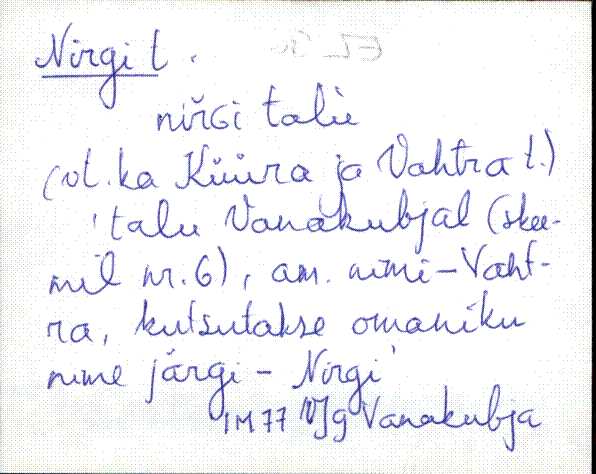 Nirgi t.
nirGi talù
(vt. ka Küüra ja Vahtra t.)
'talu Vanakubjal (skee-
mil nr. 6), am. nimi - Vaht-
ra, kutsutakse omaniku
nime järgi - Nirgi'
1M77 Vanakubja